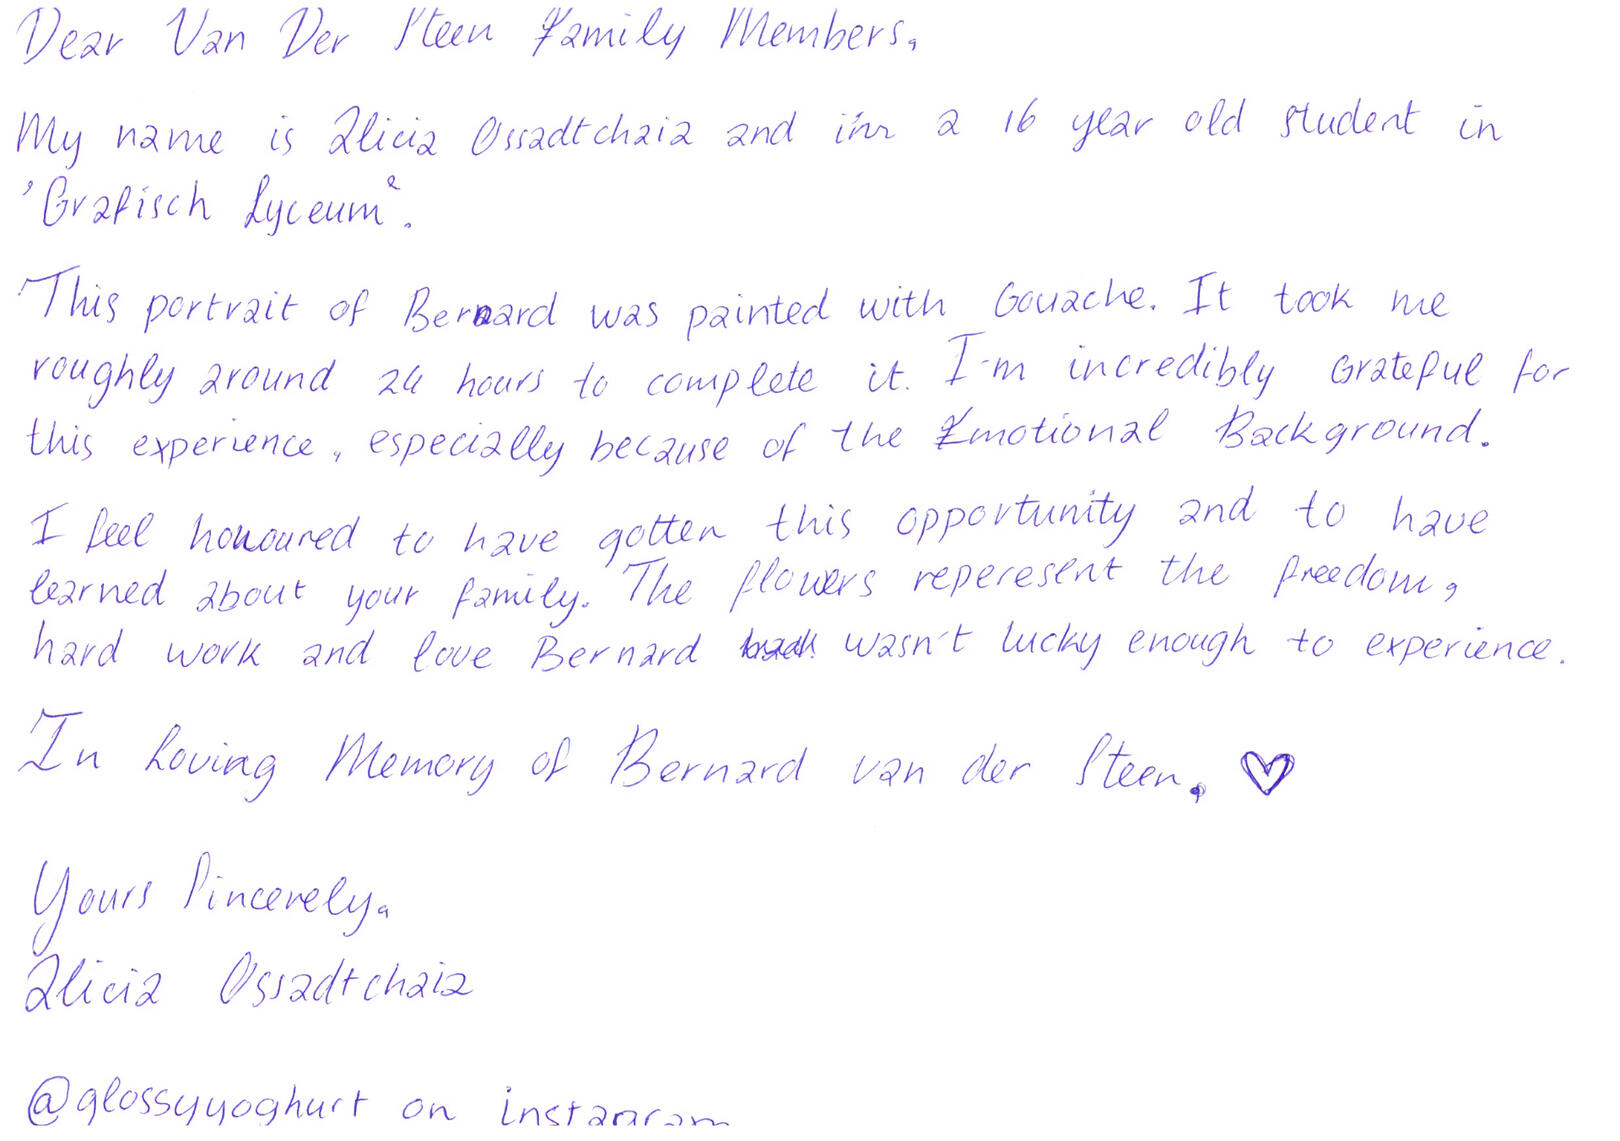 Dear Van Der Steen Family Members,
My name is Alicia Ossadtchaia and im a 16 year old student in
'Grafisch Lyceum'.
This portrait of Bernard was painted with Gouache. It took me
roughly around 24 hours to complete it. I'm incredibly Grateful for
this experience, especially because of the Emotional Background.
I feel honoured to have gotten this opportunity and to have
learned about your family. The flowers reperesent the freedom,
hard work and love Bernard wasn't lucky enough to experience.
In Loving Memory of Bernard van der Steen. ♡
Yours Sincerely,
Alicia Ossadtchaia
@glossyyoghurt on instagram